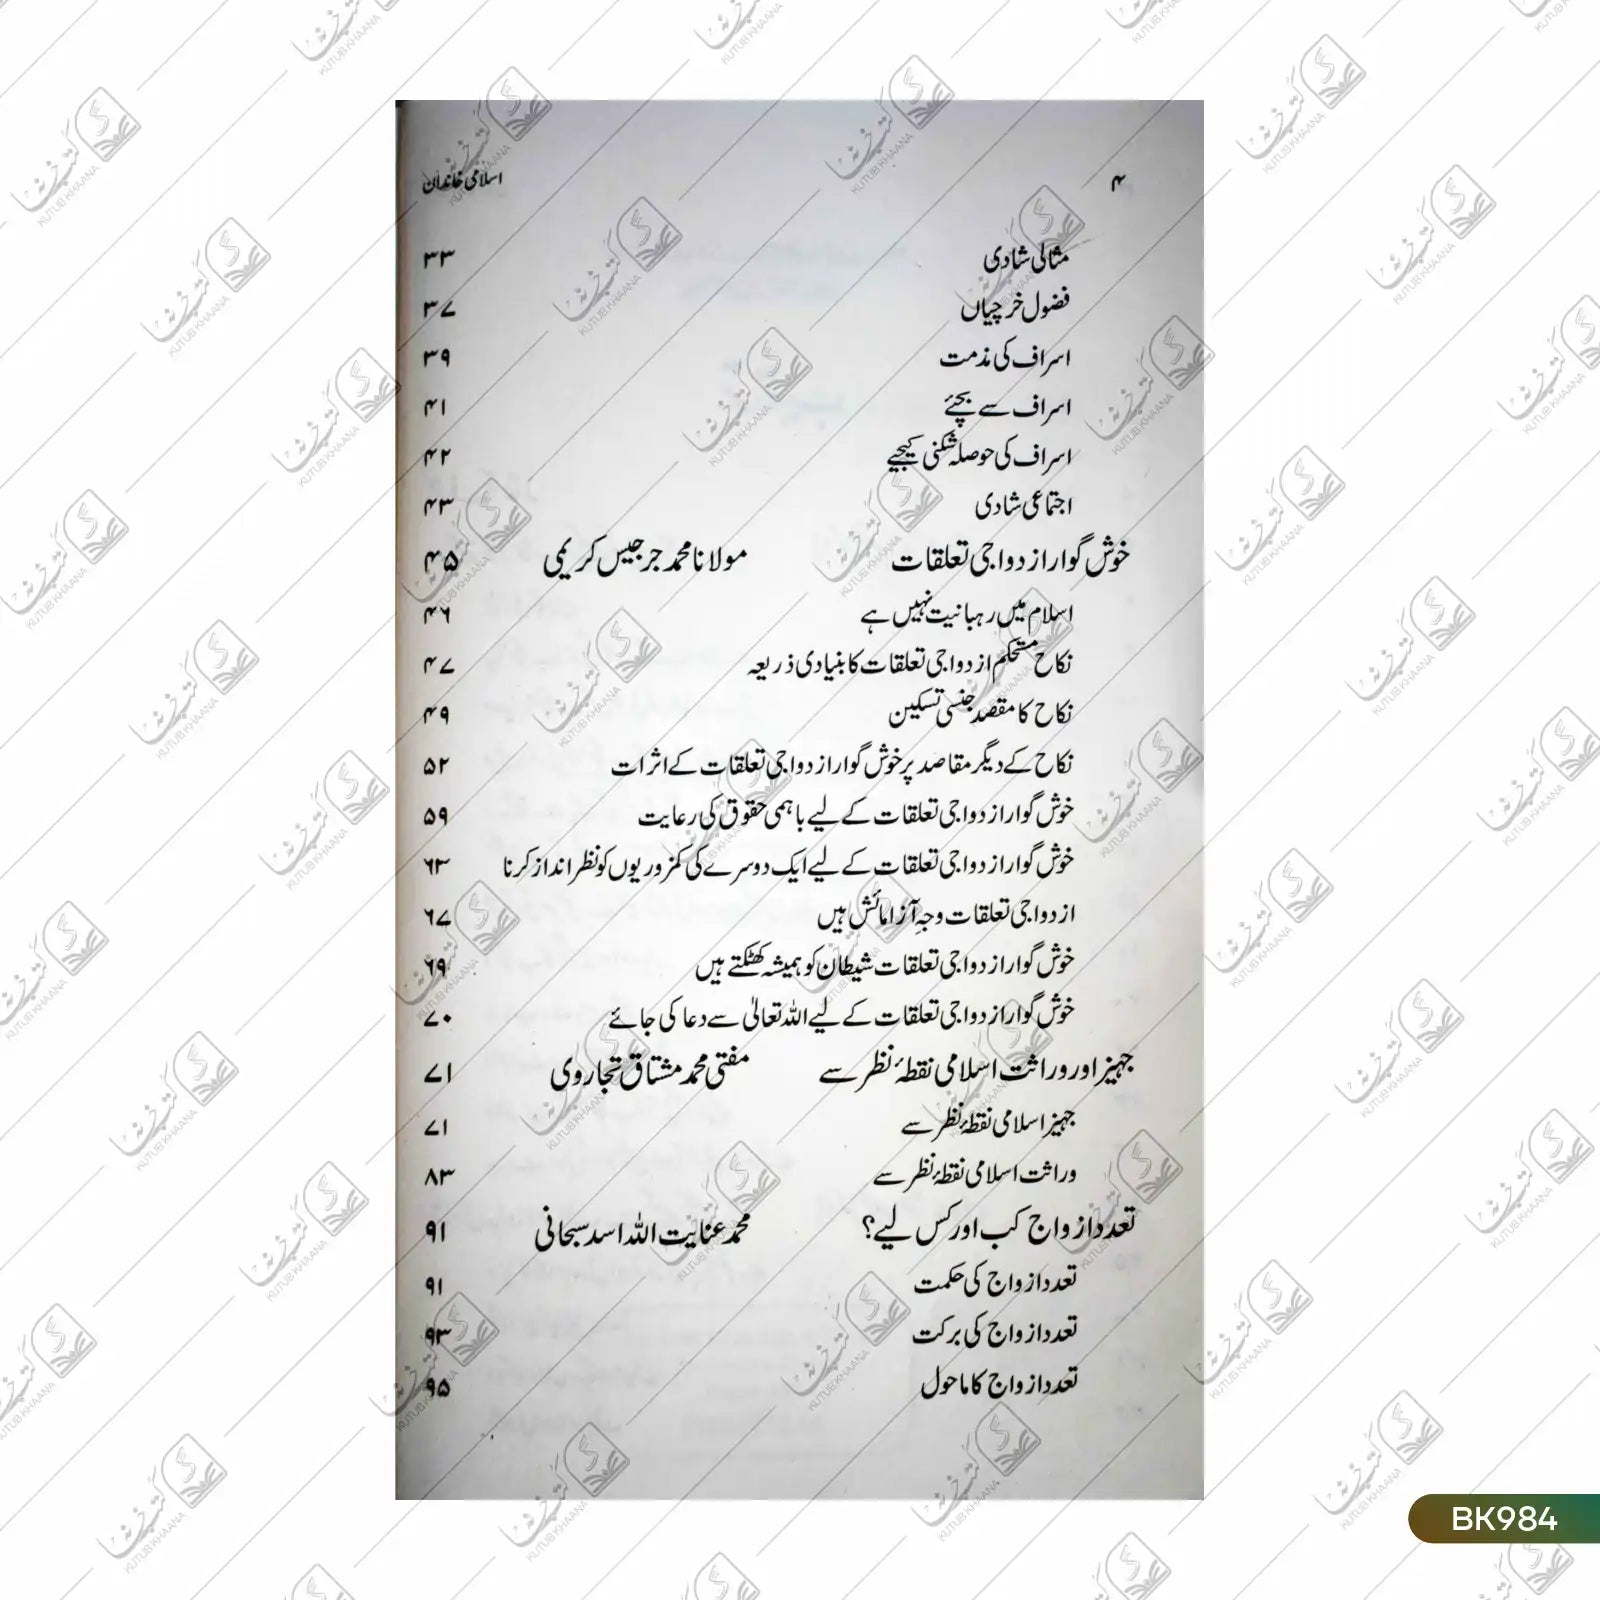 ۴ اسلامی خاندان
مثالی شادی ۳۳
فضول خرچیاں ۳۷
اسراف کی مذمت ۳۹
اسراف سے بچئے ۴۱
اسراف کی حوصلہ شکنی کیجیے ۴۲
اجتماعی شادی ۴۳
خوش گوار ازدواجی تعلقات مولانا محمد جرجیس کریمی ۴۵
اسلام میں رہبانیت نہیں ہے ۴۶
نکاح مستحکم ازدواجی تعلقات کا بنیادی ذریعہ ۴۷
نکاح کا مقصد جنسی تسکین ۴۹
نکاح کے دیگر مقاصد پر خوش گوار ازدواجی تعلقات کے اثرات ۵۲
خوش گوار ازدواجی تعلقات کے لیے باہمی حقوق کی رعایت ۵۹
خوش گوار ازدواجی تعلقات کے لیے ایک دوسرے کی کمزوریوں کو نظر انداز کرنا ۶۳
ازدواجی تعلقات وجہِ آزمائش ہیں ۶۷
خوش گوار ازدواجی تعلقات شیطان کو ہمیشہ کھٹکتے ہیں ۶۹
خوش گوار ازدواجی تعلقات کے لیے اللہ تعالیٰ سے دعا کی جائے ۷۰
جہیز اور وراثت اسلامی نقطۂ نظر سے مفتی محمد مشتاق تجاروی ۷۱
جہیز اسلامی نقطۂ نظر سے ۷۱
وراثت اسلامی نقطۂ نظر سے ۸۳
تعدد ازواج کب اور کس لیے؟ محمد عنایت اللہ اسد سبحانی ۹۱
تعدد ازواج کی حکمت ۹۱
تعدد ازواج کی برکت ۹۳
تعدد ازواج کا ماحول ۹۵
BK984
کتب خانہ
KUTUB KHAANA